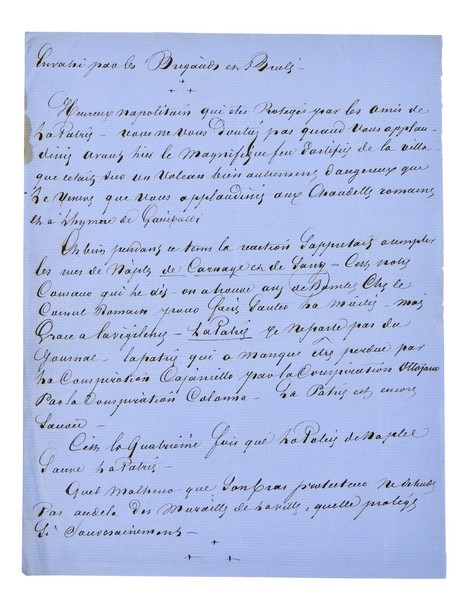 Envahi par les Brigands et Brulé -
Heureux napolitain qui êtes Protégés par les amis de
La Patrie - vous ne vous doutiez pas quand vous applau-
dissiez avant hier le Magnifique feu d'artifice de la villa
que cetait sur un Volcan bien autrement dangereux que
Le Vesuve que vous applaudissiez aux Chandelles romaines
et à L'hymne de Garibaldi
Eh bien pendant ce tems la reaction Sappretait a remplir
les rues de Naples de Carnage et de Sang - C'est notre
qui le dit - on a trouvé aux de Bombe Chez le
Consul Romain pour faire Sauter la - mais
Grace a la vigilence - La Patrie je ne parle pas du
Journal - la patrie qui a manqué être perdue par
La Conspiration Cajaniello par la Conspiration
Par la Conspiration Colonna - La Patrie est encore
Sauvée -
C'est la Quatrième fois que La Police de Naples
Sauve La Patrie -
Quel Malheur que Son Bras protecteur ne s'etende
Pas audela des Murailles de la ville, quelle protège
Si Souverainement -